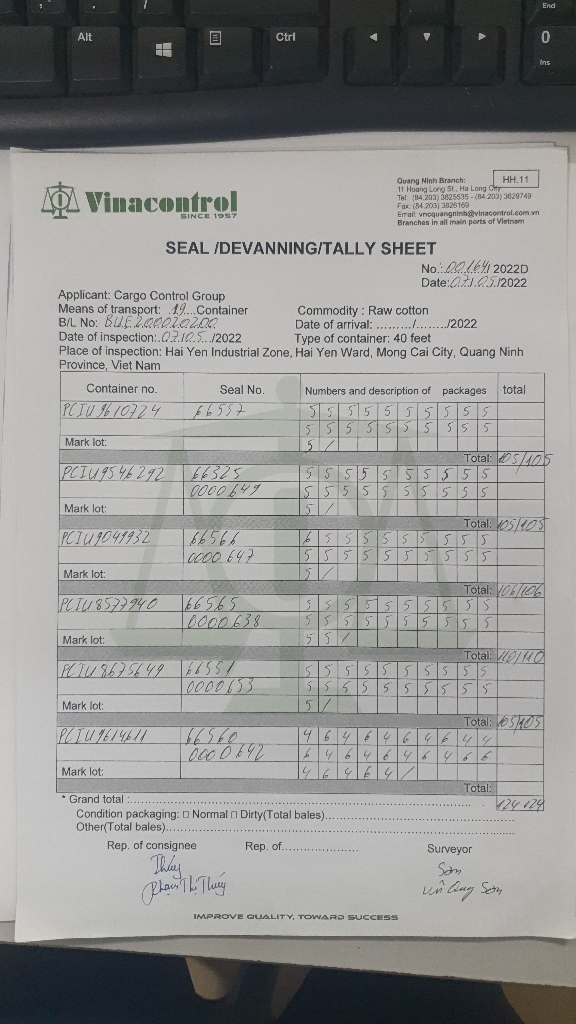 Alt
Ctrl
End
0
Ins
HH.11
Vinacontrol
SINCE 1957
Quang Ninh Branch:
11 Hoang Long St., Ha Long City
Tel: (84.203) 3825535 - (84.203) 3629749
Fax: (84.203) 3826169
Email: vncquangninh@vinacontrol.com.vn
Branches in all main ports of Vietnam
SEAL /DEVANNING/TALLY SHEET
No: 00164/ 2022D
Date: 07/05/2022
Applicant: Cargo Control Group
Means of transport: 19 Container Commodity : Raw cotton
B/L No: BUE200020200 Date of arrival: ........./......../2022
Date of inspection: 07/05/2022 Type of container: 40 feet
Place of inspection: Hai Yen Industrial Zone, Hai Yen Ward, Mong Cai City, Quang Ninh
Province, Viet Nam
Container no. Seal No. Numbers and description of packages total
PCIU9610724 66557 5 5 5 5 5 5 5 5 5 5
5 5 5 5 5 5 5 5 5 5
Mark lot: 5 /
Total: 105/105
PCIU9546292 66325 5 5 5 5 5 5 5 5 5 5
0000649 5 5 5 5 5 5 5 5 5 5
Mark lot: 5 /
Total: 105/105
PCIU9041932 66566 6 5 5 5 5 5 5 5 5 5
0000647 5 5 5 5 5 5 5 5 5 5
Mark lot: 5 /
Total: 106/106
PCIU8577940 66565 5 5 5 5 5 5 5 5 5 5
0000638 5 5 5 5 5 5 5 5 5 5
Mark lot: 5 5 /
Total: 110/110
PCIU8675649 66551 5 5 5 5 5 5 5 5 5 5
0000653 5 5 5 5 5 5 5 5 5 5
Mark lot: 5 /
Total: 105/105
PCIU9614611 66560 4 6 4 6 4 6 4 6 4 4
0000642 6 4 6 4 6 4 6 4 6 6
Mark lot: 4 6 4 6 4 /
Total:
124 124
* Grand total :
Condition packaging: □ Normal □ Dirty(Total bales)
Other(Total bales)
Rep. of consignee Rep. of Surveyor
Thúy Sơn
Phạm Thị Thúy Sơn
IMPROVE QUALITY, TOWARD SUCCESS